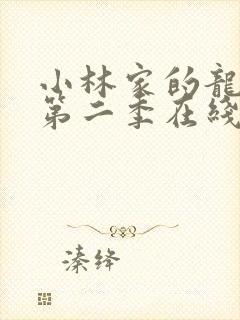 小林家的龍
第二季在綫
溱绛